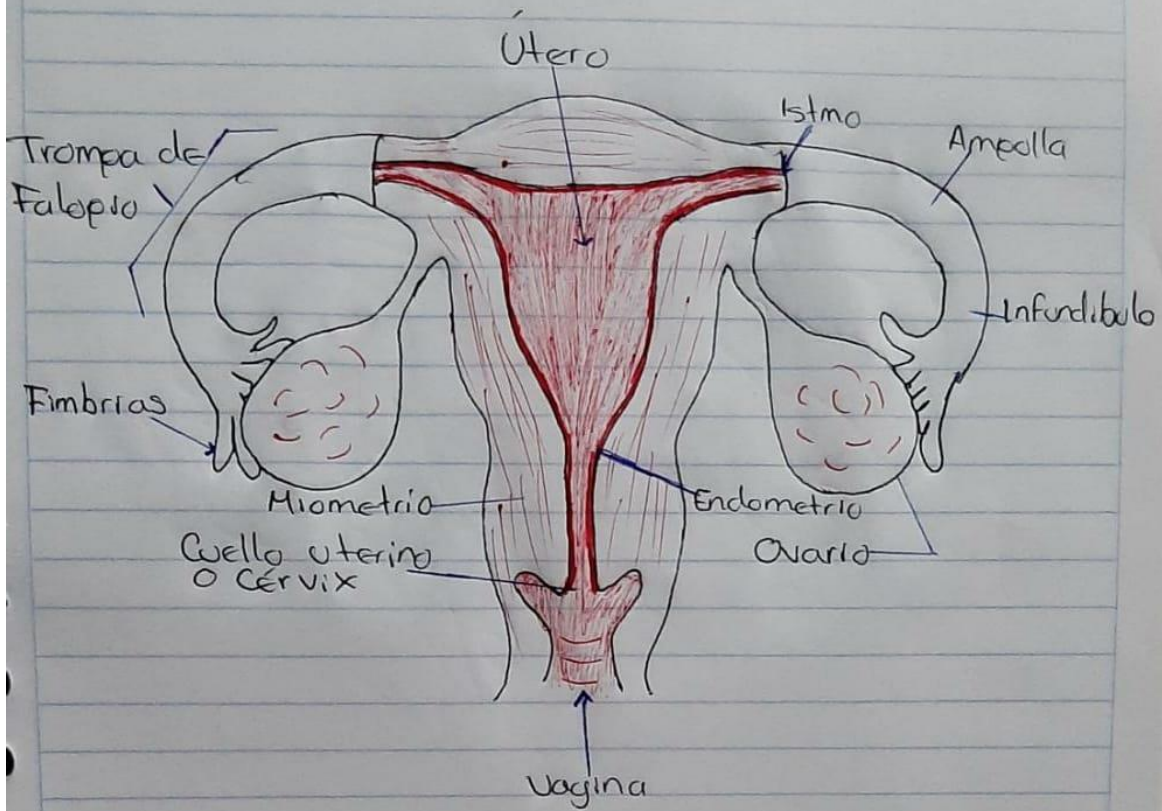 Útero
Istmo
Ampolla
Trompa de
Falopio
Infundibulo
Fimbrias
Miometrio
Endometrio
Cuello uterino
o Cérvix
Ovario
Vagina